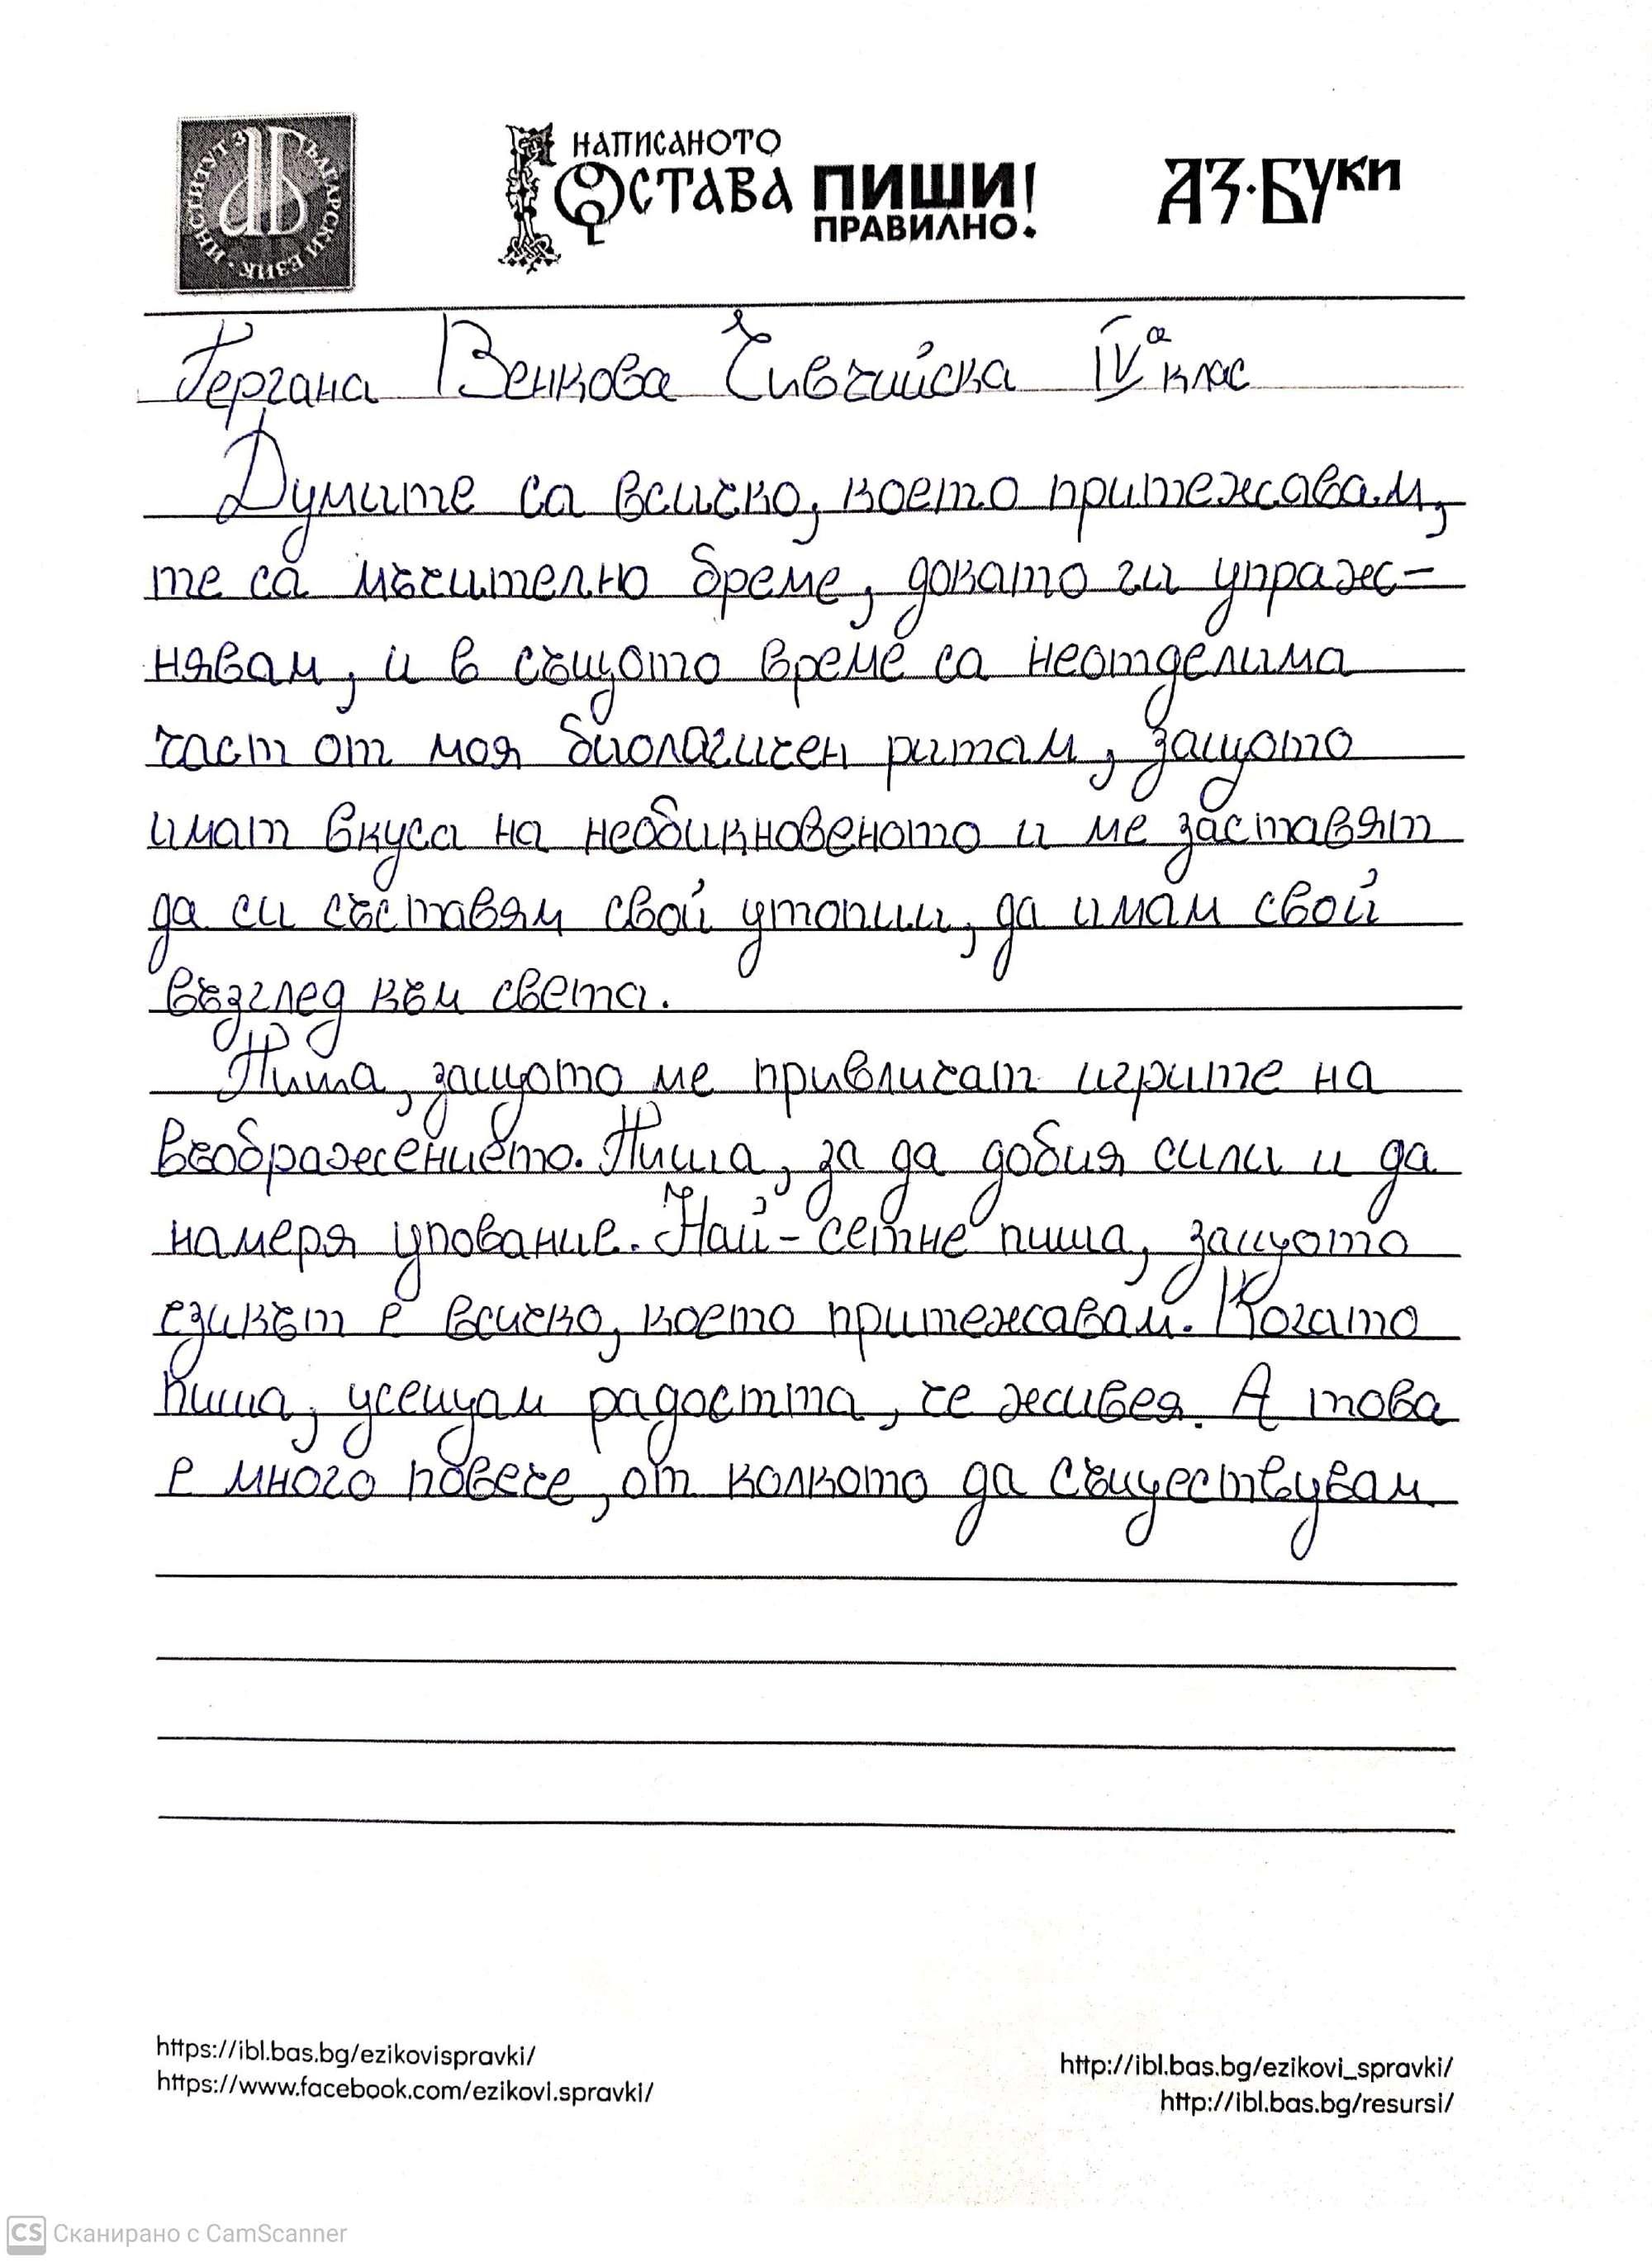 ИНСТИТУТ ЗА БЪЛГАРСКИ ЕЗИК
НАПИСАНОТО
ОСТАВА ПИШИ!
ПРАВИЛНО.
АЗ·БУКИ
Гергана Венкова Чивчийска IVа клас
Думите са всичко, което притежавам,
те са мъчително бреме, докато ги упраж-
нявам, и в същото време са неотделима
част от моя биологичен ритам, защото
имат вкуса на необикновеното и ме заставят
да си съставям свой утопии, да имам свой
възглед към света.
Пиша, защото ме привличат игрите на
въображението. Пиша, за да добия сили и да
намеря упование. Най-сетне пиша, защото
езикът е всичко, което притежавам. Когато
пиша, усещам радостта, че живея. А това
е много повече, от колкото да съществувам
https://ibl.bas.bg/ezikovispravki/
https://www.facebook.com/ezikovi.spravki/
http://ibl.bas.bg/ezikovi_spravki/
http://ibl.bas.bg/resursi/
CS Сканирано с CamScanner